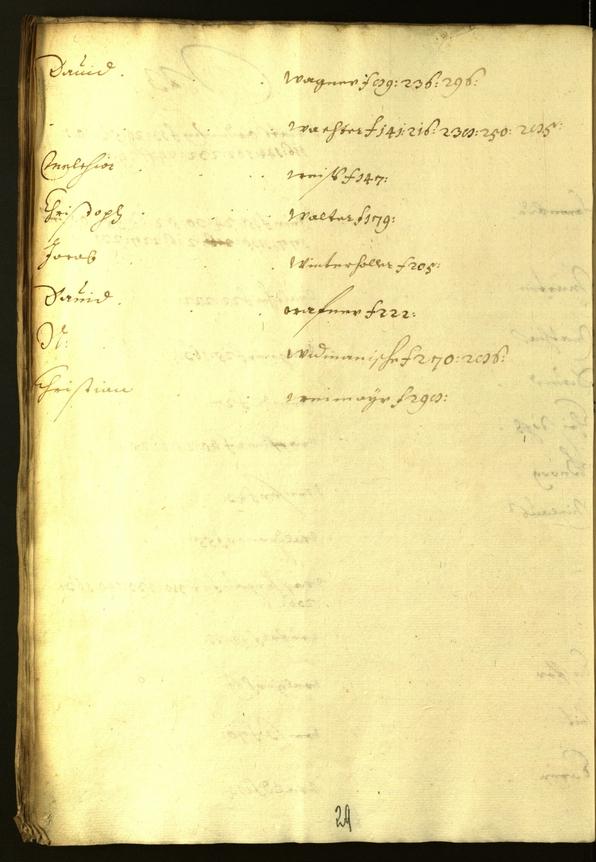 Dauid. Wagner f 89: 236: 296:
Wachter f 141: 216: 238: 250: 285:
Melchior weiß f 147:
Christoph Walter f 179:
Jacob Winterholler f 205:
Dauid. f 222:
N: Widmanische f 270: 286:
Christian weimayr f 298:
29